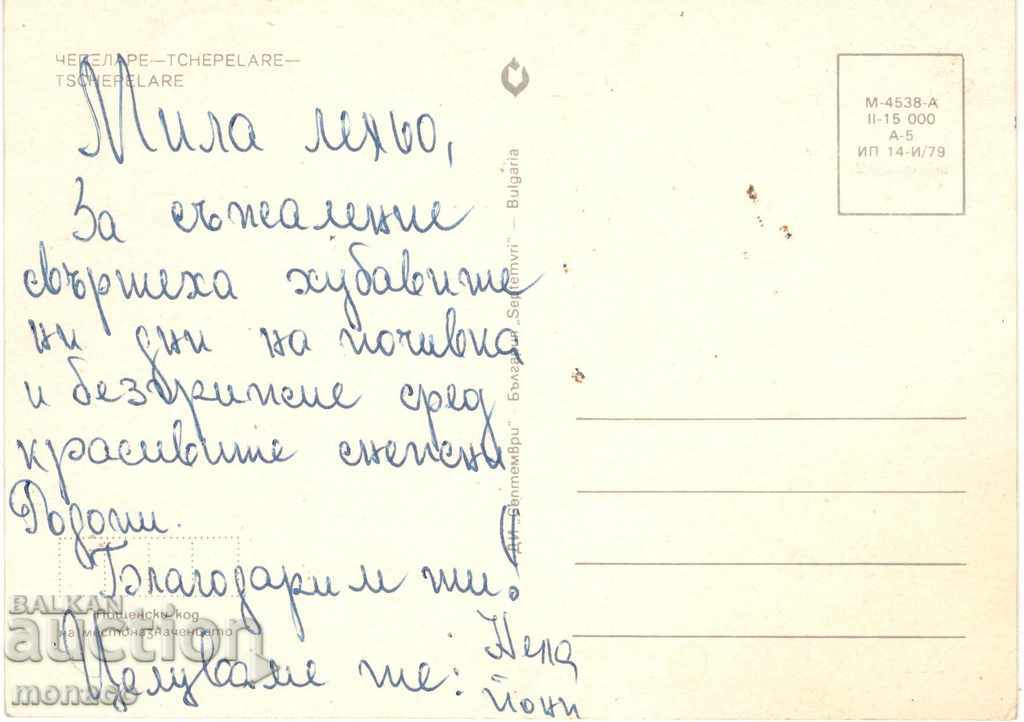 ЧЕПЕЛАРЕ—TCHEPELARE—
TSCHEPELARE
Мила лельо,
За съжаление
свършеха хубавите
ни дни на почивка
и безгрижие сред
красивите снежни
Родопи.
Благодарим ти!
Целуваме те:
Йони
Пощенски код
на местоназначението
ДИ „Септември" - България „Septemvri" — Bulgaria
М-4538-А
II-15 000
А-5
ИП 14-И/79
BALKAN
auction
monaco